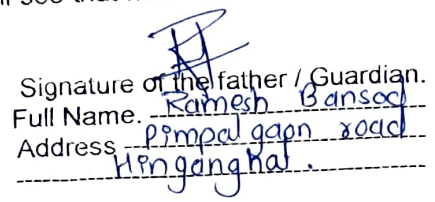 see that
Signature of the father / Guardian.
Full Name. Ramesh Bansod
Address pimpal gaon road
Hinganghat.